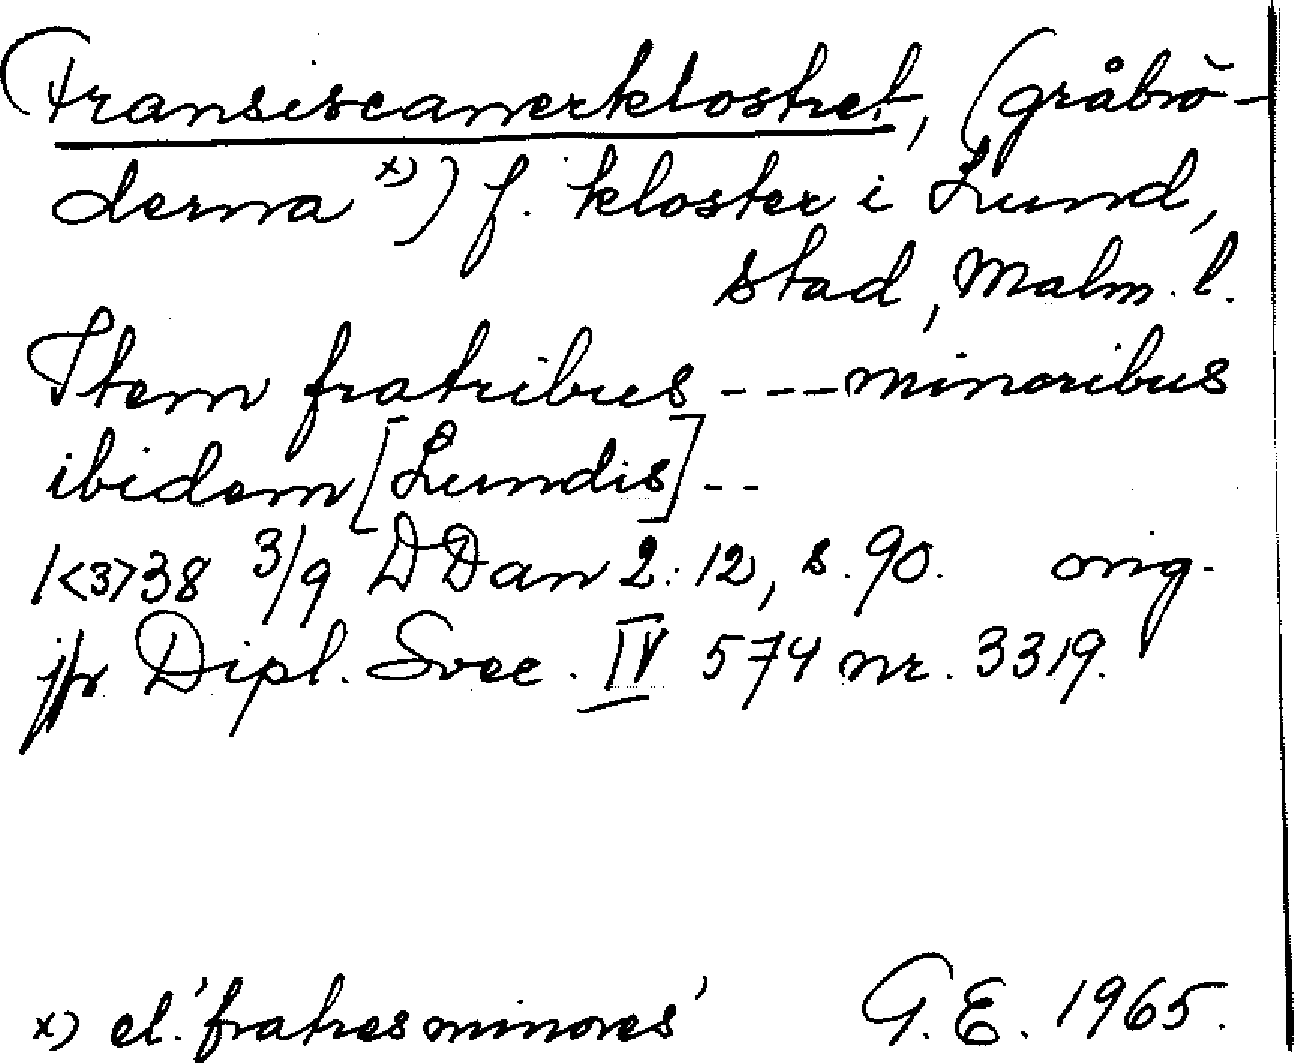 Fransiscanerklostret, (gråbrö-
derna x)) f. kloster i Lund,
stad, Malm. l.
Item fratribus --- minoribus
ibidem [Lundis] --
1<3>38 3/9 DDan 2:12, s. 90. orig.
jfr Dipl. Svec. IV 574 nr. 3319.
x) el. 'fratres minores' G.E. 1965.